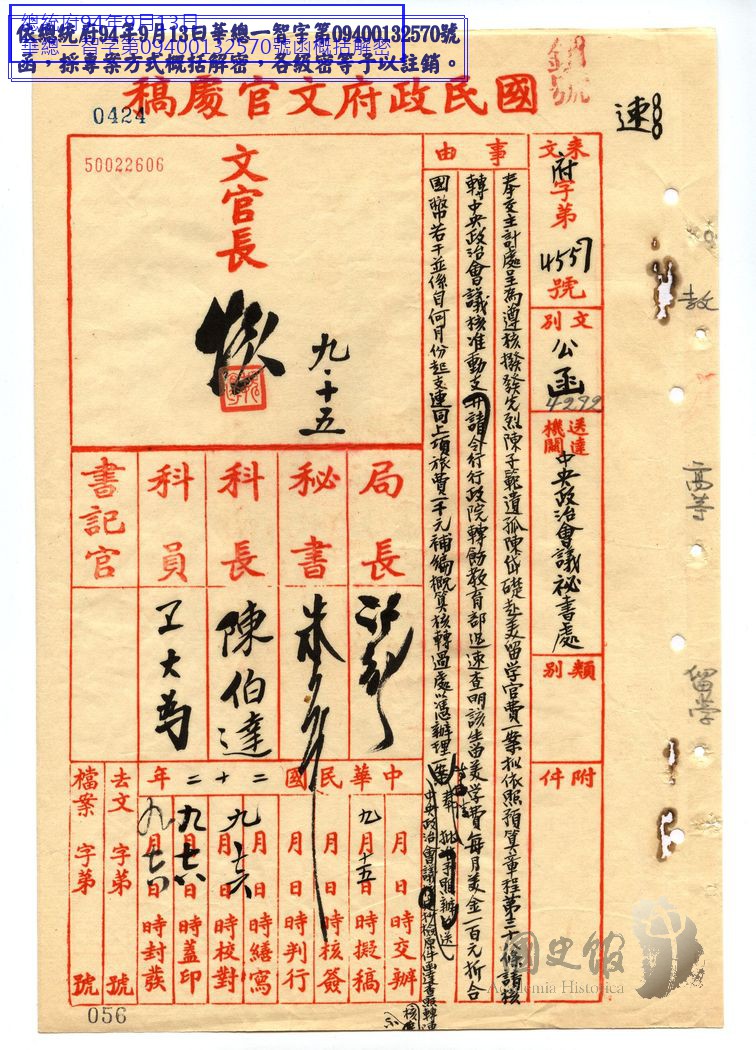 總統府94年9月13日
華總一智字第09400132570號函概括解密
依總統府94年9月13日華總一智字第09400132570號
函，採專案方式概括解密，各級密等予以註銷。
國民政府文官處稿
0424
50022606
速
來文
府字第
4557
號
文別
公函
4292
送達機關
中央政治會議祕書處
類別
附件
事由
奉交主計處呈為遵核撥發先烈陳子範遺孤陳岱礎赴美留学官費一案擬依照預算章程第三十條請核
轉中央政治會議核准動支并請令行行政院轉飭教育部迅速查明該生留美学費每月美金一百元折合
國幣若干並係自何月份起支連同上項旅費一千元補編概算核轉過處以憑辦理一案
文官長
九・十五
局長
秘書
科長
陳伯達
科員
王大為
書記官
中華民國二十二年
月 日 時交辦
九月十五日 時擬稿
月 日 時核簽
月 日 時判行
月 日 時繕寫
九月十六日 時校對
九月十六日 時蓋印
九月十六日 時封發
去文 字第 號
檔案 字第 號
教
高等
留学
國史館
Academia Historica
056